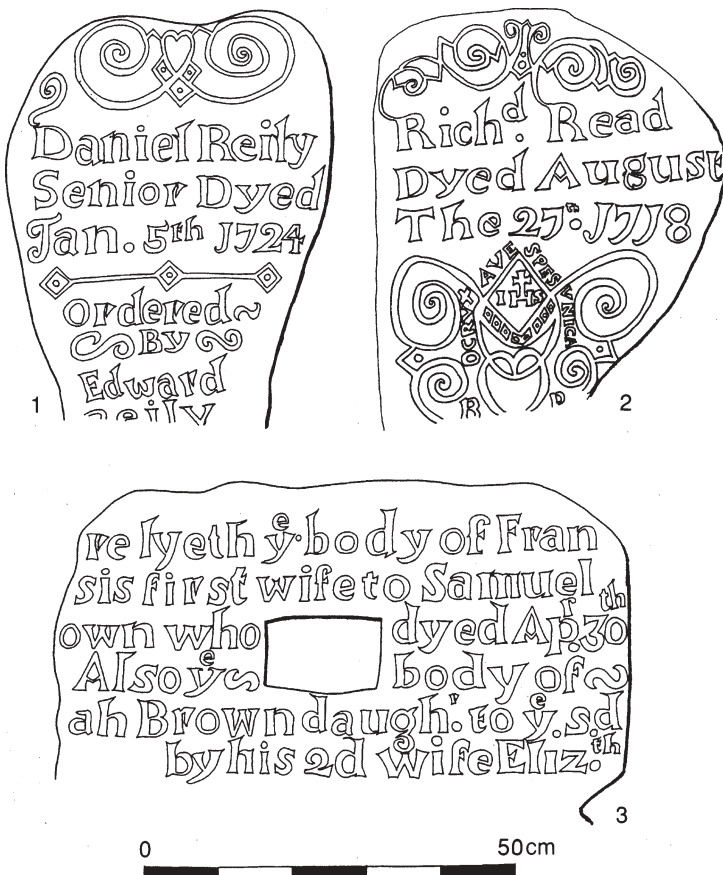 Daniel Reily
Senior Dyed
Jan. 5th 1724
Ordered
By
Edward
Reily
1
Richd. Read
Dyed August
The 27th. 1718
OCRUX AVE SPES VNICA
IHS
R D
2
re lyeth ye. body of Fran
sis first wife to Samuel
own who dyed Apr. 30th
Also ye body of
ah Brown daughr. to ye. sd
by his 2d wife Eliz.th
3
0 50cm